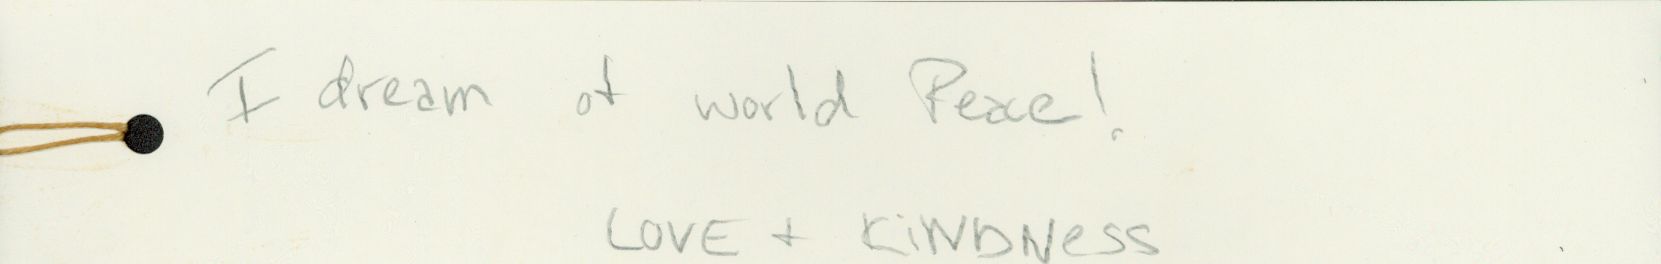 I dream of world Peace!
LOVE + KiNDNeSS